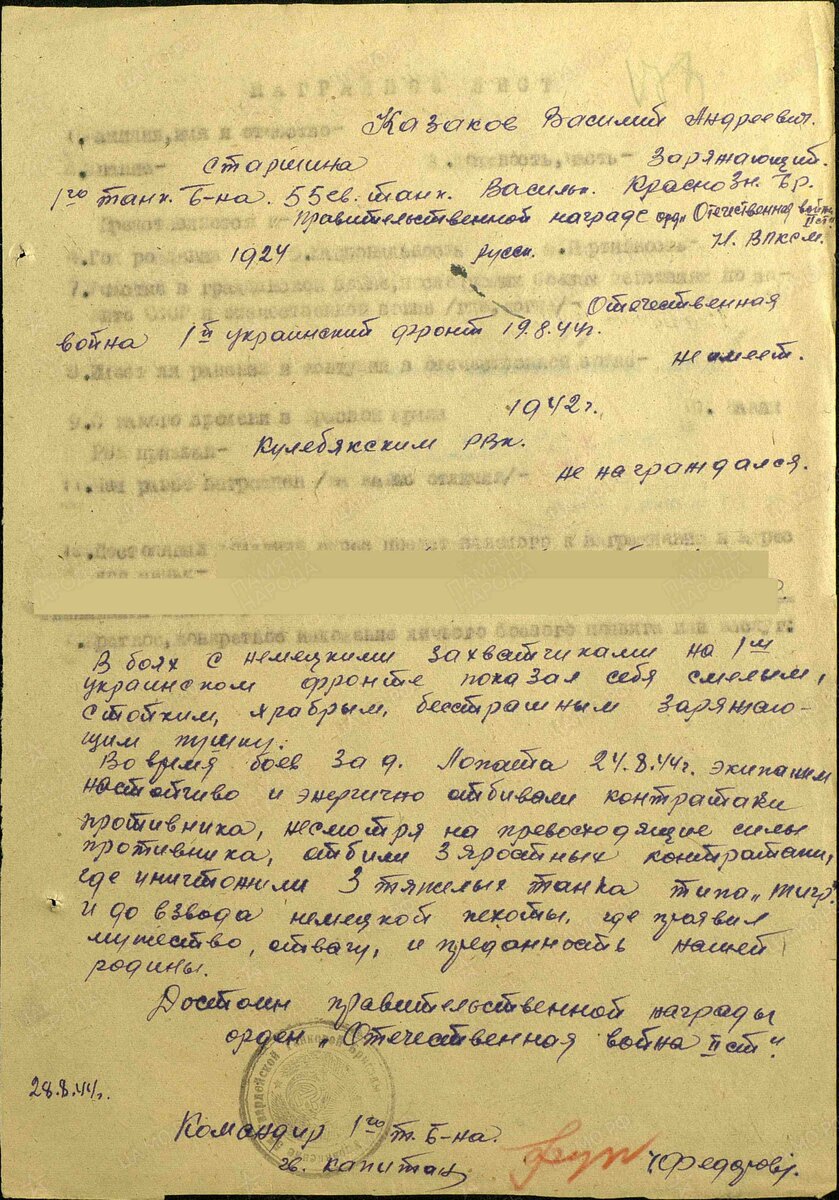 НАГРАДНОЙ ЛИСТ
1. Фамилия, имя и отчество- Казаков Василий Андреевич.
звание- старшина должность, часть- Заряжающий.
1го танк. б-на. 55 гв. танк. Васильк. Краснозн. бр.
Представляется к- правительственной награде орд. „Отечественная война IIст"
4. Год рождения 1924 национальность русск. партийность- чл. ВЛКСМ.
7. Участие в гражданской войне, последующих боевых действиях по за-
щите СССР и отечественной войне /где, когда/- Отечественная
война 1й украинский фронт 19.8.44г.
8. Имеет ли ранения и контузии в отечественной войне- не имеет.
9. С какого времени в Красной армии 1942г. 10. Каким
РВК призван- Кулебякским РВк.
11. Чем ранее награжден /за какие отличия/- не награждался.
краткое, конкретное изложение личного боевого подвига или заслуг:
В боях с немецкими захватчиками на 1м
украинском фронте показал себя смелым,
стойким, храбрым, бесстрашным заряжаю-
щим пушку.
Во время боев за д. Лопата 24.8.44г. экипажем
настойчиво и энергично отбивали контратаки
противника, несмотря на превосходящие силы
противника, отбили 3 яростных контратаки,
где уничтожили 3 тяжелых танка типа „тигр"
и до взвода немецкой пехоты, где проявил
мужество, отвагу, и преданность нашей
родины.
Достоин правительственной награды
орден „Отечественная война IIст".
28.8.44г.
Командир 1го т. б-на.
гв. капитан /Федоров/.